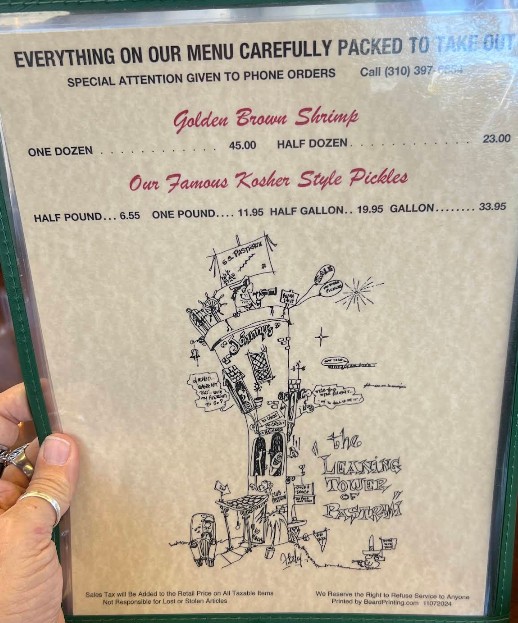 EVERYTHING ON OUR MENU CAREFULLY PACKED TO TAKE OUT
SPECIAL ATTENTION GIVEN TO PHONE ORDERS Call (310) 397-
Golden Brown Shrimp
ONE DOZEN . . . . . . . . . . . . 45.00 HALF DOZEN . . . . . . . . . . . . 23.00
Our Famous Kosher Style Pickles
HALF POUND... 6.55 ONE POUND.... 11.95 HALF GALLON.. 19.95 GALLON........ 33.95
Johnnie's
"the
LEANING
TOWER
OF
PASTRAMI"
Sales Tax will be Added to the Retail Price on All Taxable Items
Not Responsible for Lost or Stolen Articles
We Reserve the Right to Refuse Service to Anyone
Printed by BeardPrinting.com 11072024